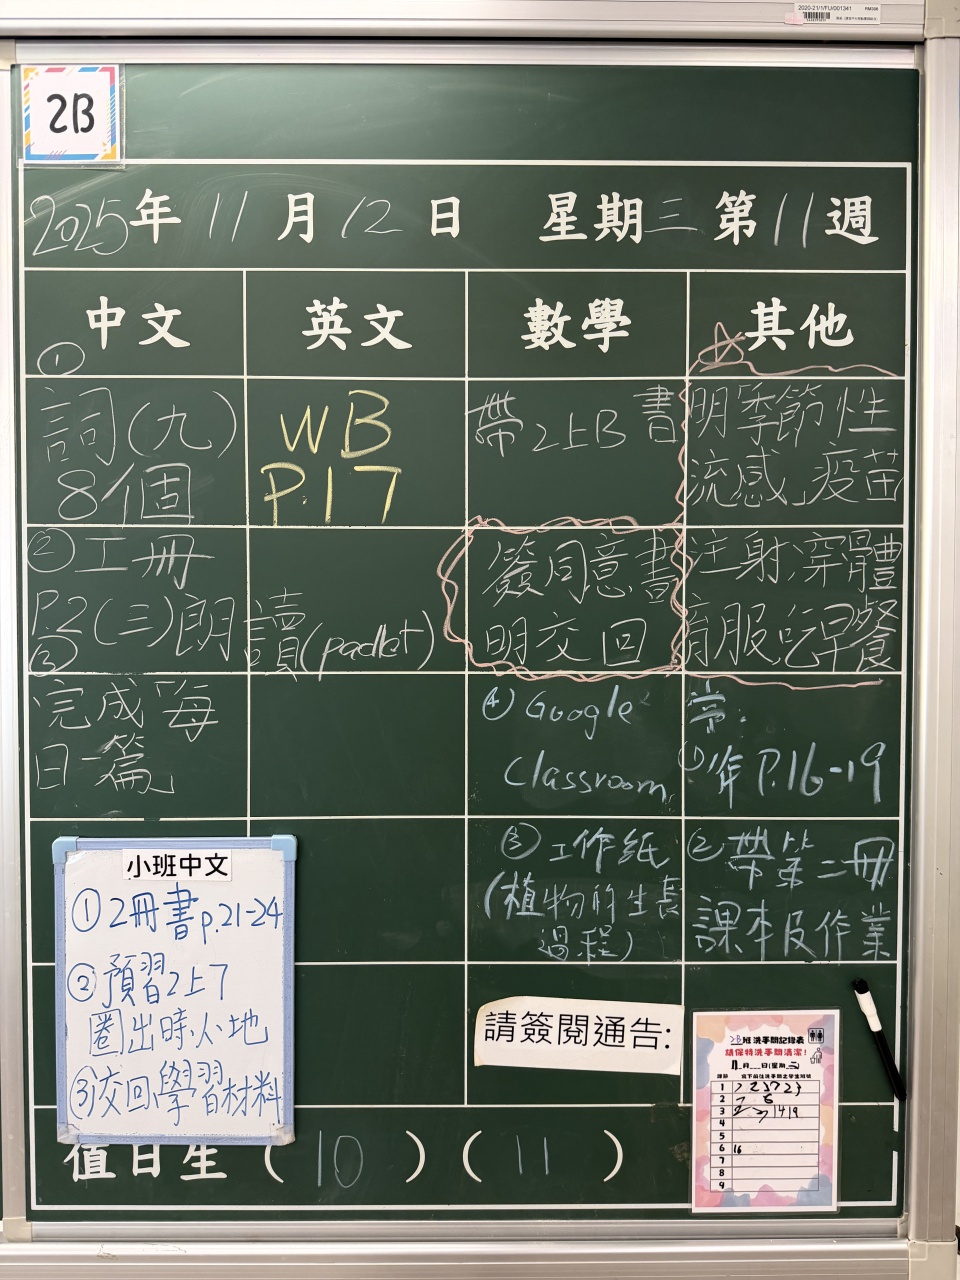 2020-21/1/FU/001341
2B
2025年11月12日 星期三 第11週
中文
英文
數學
其他
①
詞(九)
8個
②工冊
P.2(三)
③
朗讀(padlet)
完成「每
日一篇」
WB
P.17
帶2上B書
簽同意書
明交回
④ Google
Classroom
③ 工作紙
(植物的生長
過程)
明季節性
流感疫苗
注射,穿體
育服,吃早餐
常:
①作P.16-19
②帶第二冊
課本及作業
小班中文
①2冊書p.21-24
②預習2上7
圈出時人地
③交回學習材料
請簽閱通告:
2B班 洗手間記錄表
請保持洗手間清潔!
1
2
3
4
5
6 16
7
8
9
值日生 (10) (11)